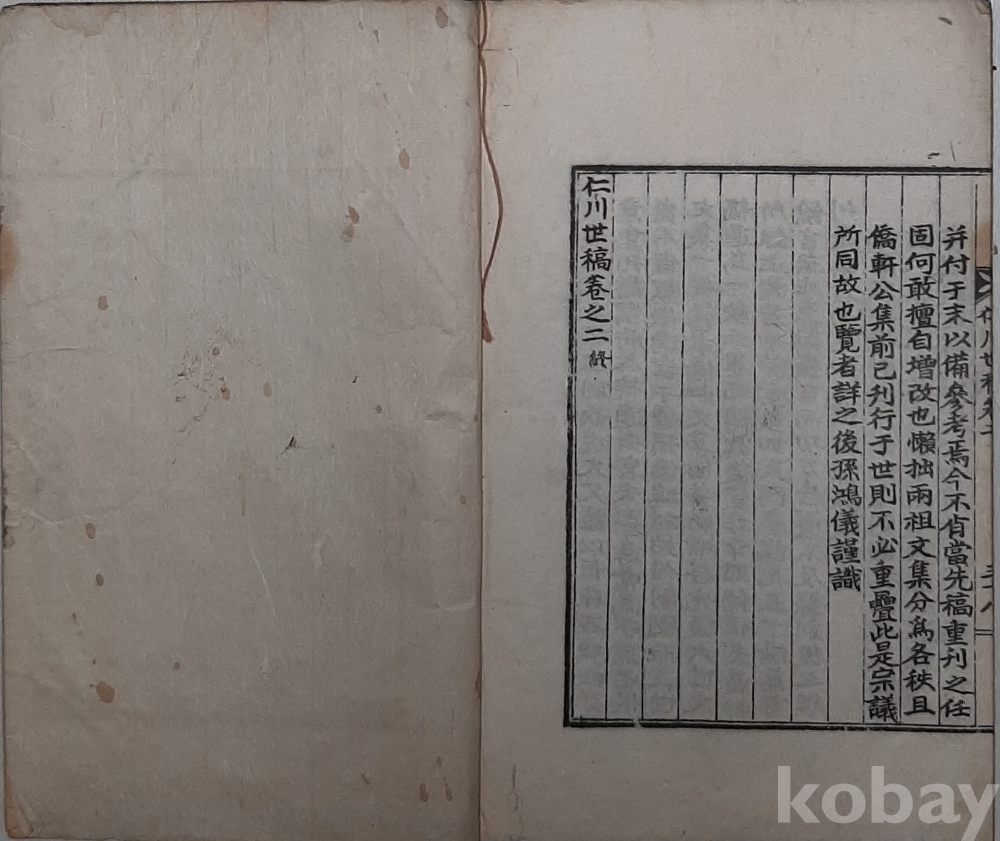 并付于末以備參考焉今不肯當先稿重刊之任
固何敢擅自增改也懶拙兩祖文集分爲各秩且
僑軒公集前已刋行于世則不必重疊此是宗議
所同故也覽者詳之後孫鴻儀謹識
仁川世稿卷之二 終
仁川世稿卷二
三十八
kobay